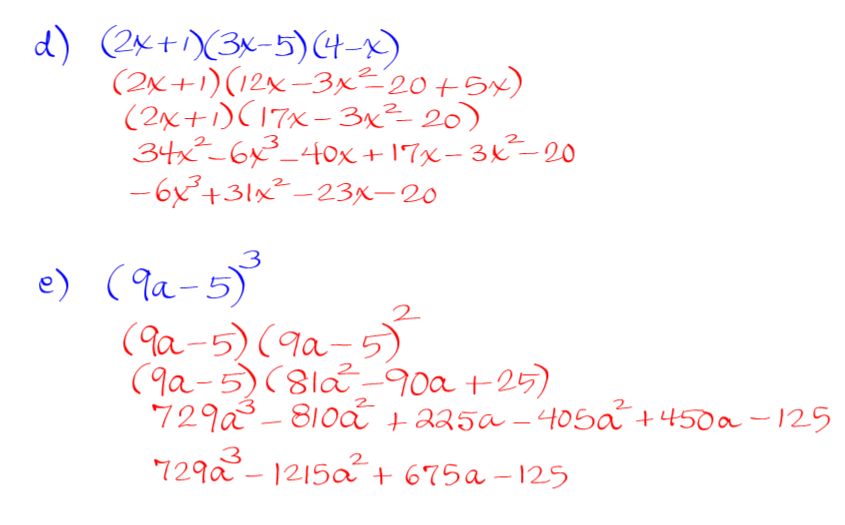 d) (2x+1)(3x-5)(4-x)
(2x+1)(12x-3x²-20+5x)
(2x+1)(17x-3x²-20)
34x²-6x³-40x+17x-3x²-20
-6x³+31x²-23x-20
e) (9a-5)³
(9a-5)(9a-5)²
(9a-5)(81a²-90a+25)
729a³-810a²+225a-405a²+450a-125
729a³-1215a²+675a-125